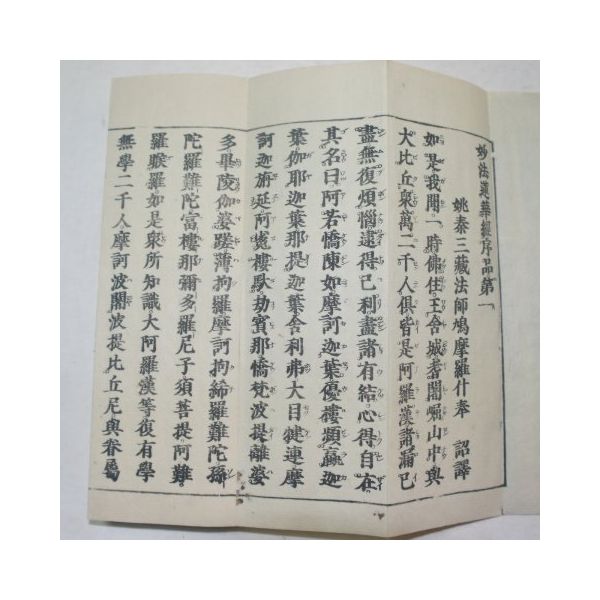 妙法蓮華經序品第一
姚秦三藏法師鳩摩羅什奉　詔譯
如是我聞一時佛住王舍城耆闍崛山中與
大比丘衆萬二千人俱皆是阿羅漢諸漏已
盡無復煩惱逮得己利盡諸有結心得自在
其名曰阿若憍陳如摩訶迦葉優樓頻蠃迦
葉伽耶迦葉那提迦葉舍利弗大目犍連摩
訶迦旃延阿㝹樓馱劫賓那憍梵波提離婆
多畢陵伽婆蹉薄拘羅摩訶拘絺羅難陀孫
陀羅難陀富樓那彌多羅尼子須菩提阿難
羅睺羅如是衆所知識大阿羅漢等復有學
無學二千人摩訶波闍波提比丘尼與眷屬